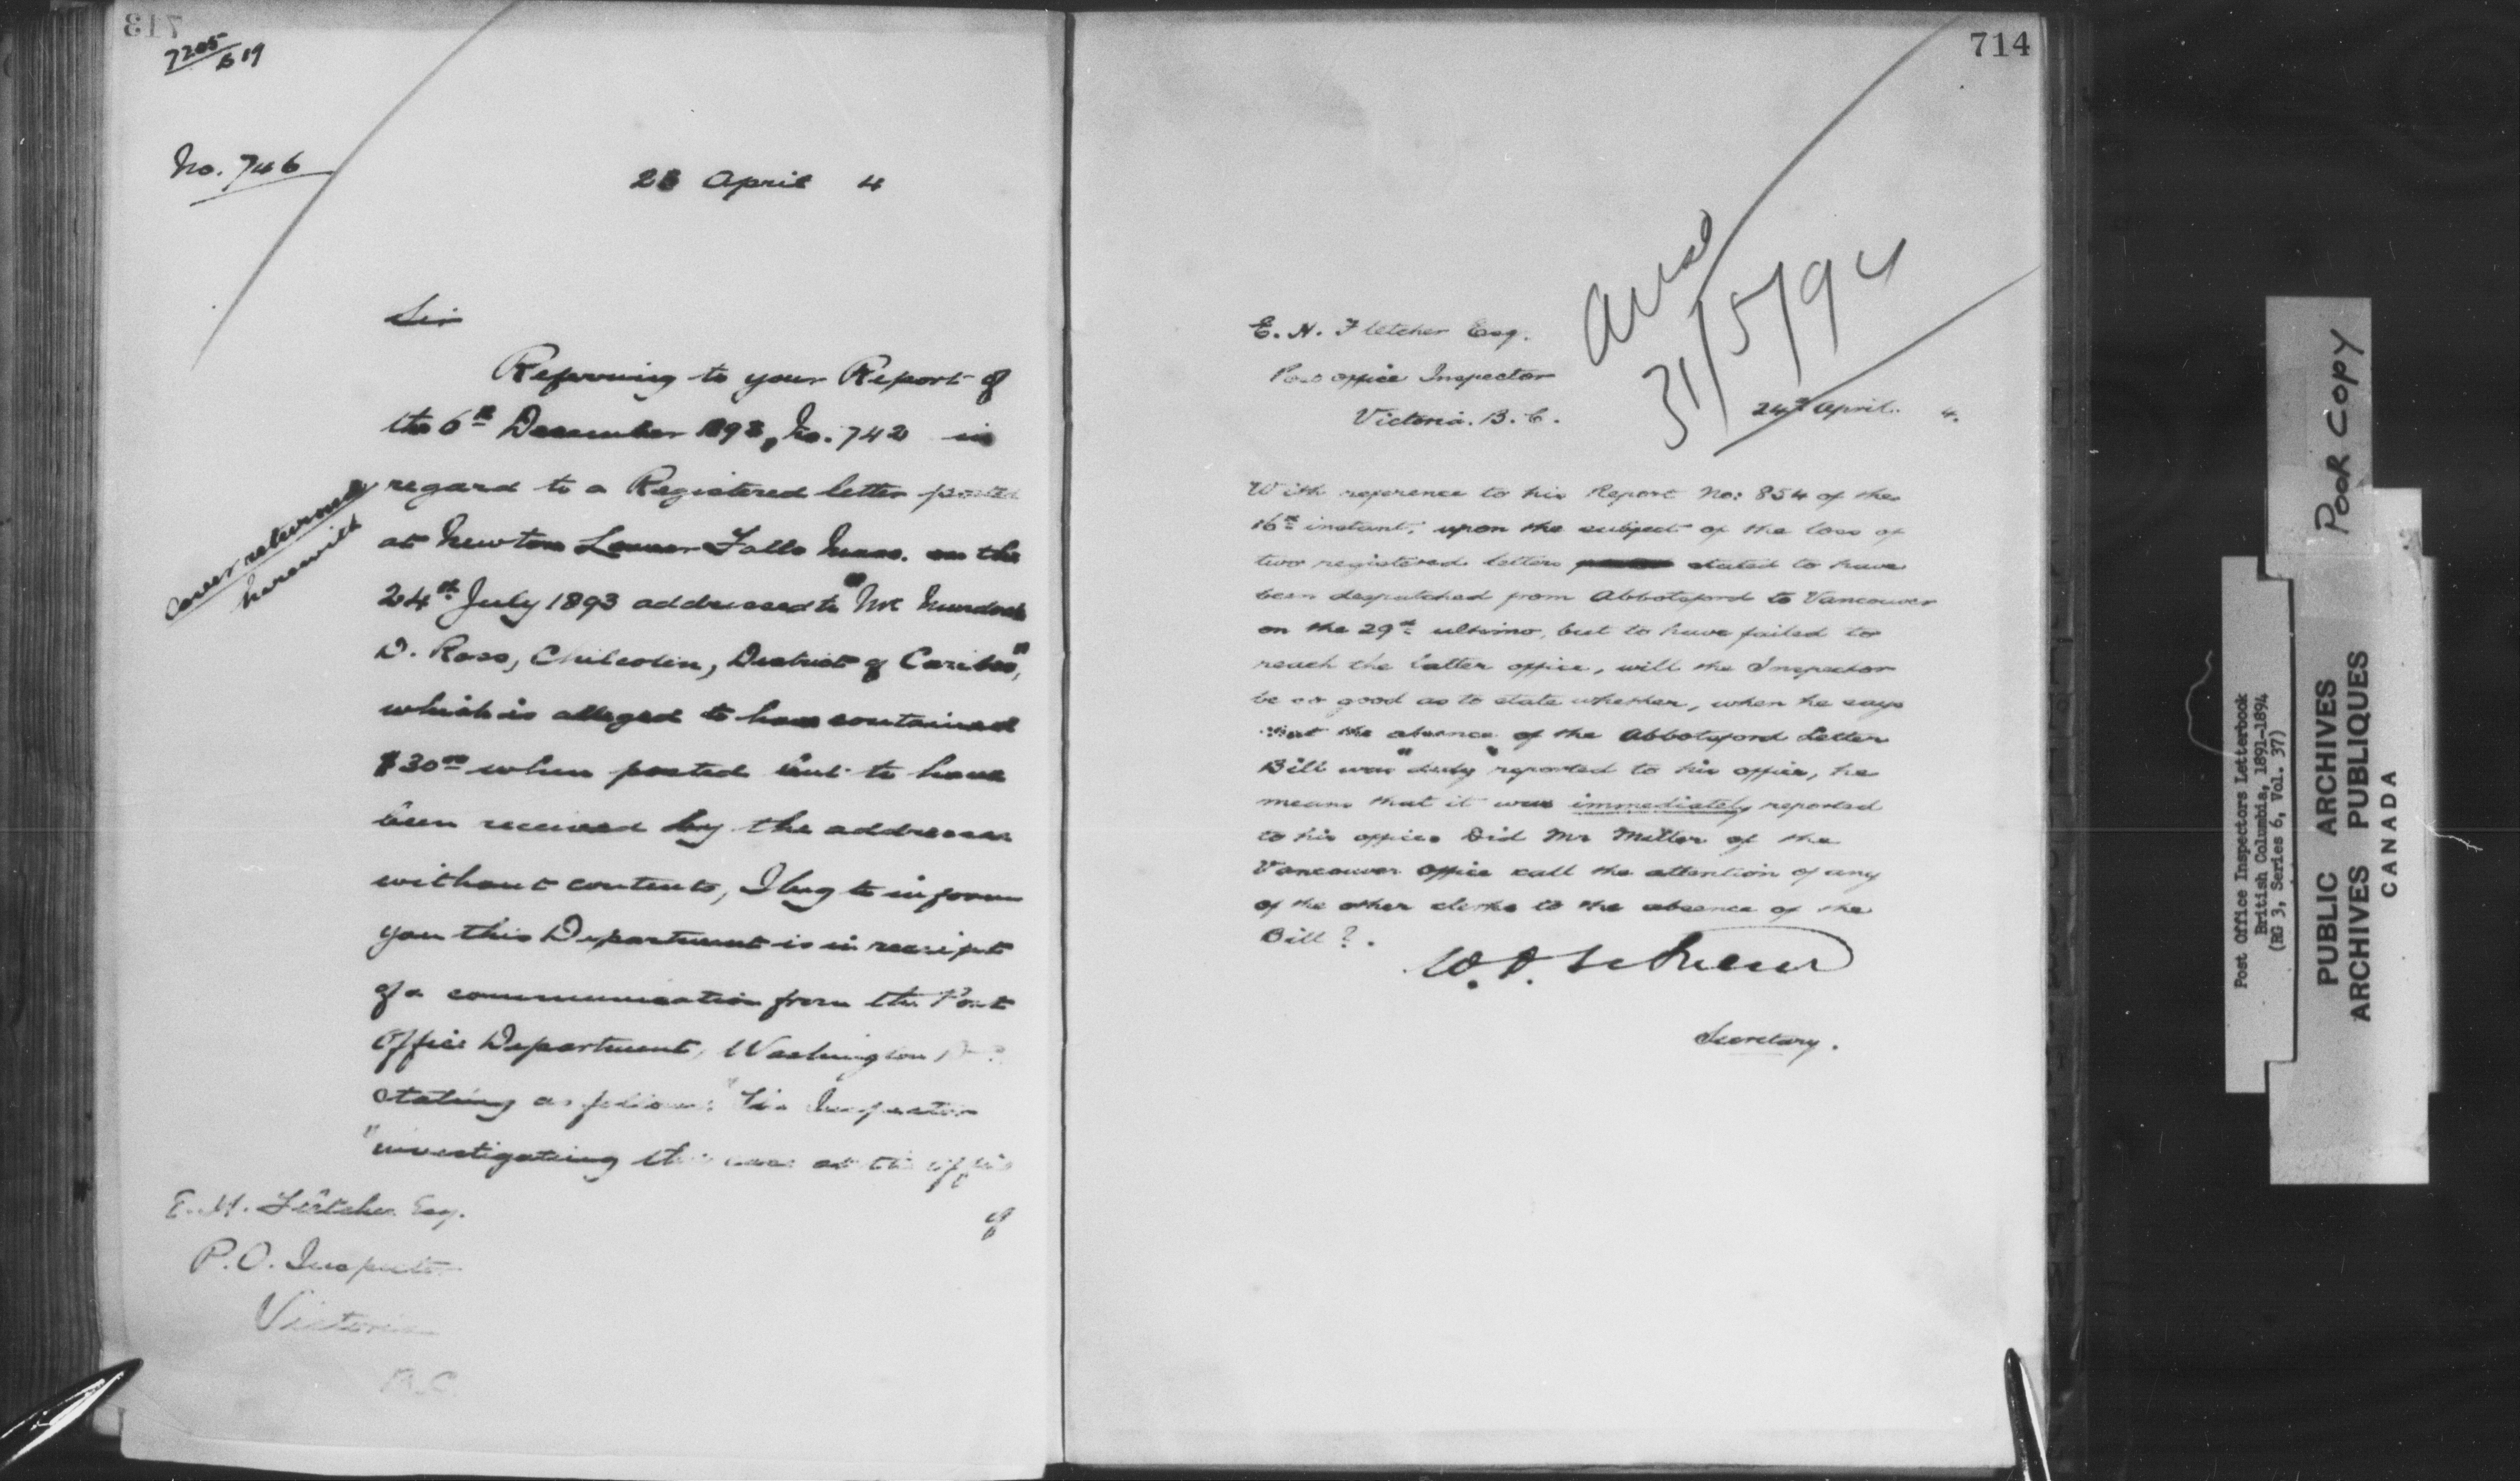 713
7205
B 19
No. 746
23 April 4
Sir
Referring to your Report of
the 6th December 1893, No. 742 in
regard to a Registered letter posted
at Newton Lower Falls Mass. on the
24th July 1893 addressed to "Mr Murdoch
D. Ross, Chilcotin, District of Cariboo",
which is alleged to have contained
$30.00 when posted but to have
been received by the addressee
without contents, I beg to inform
you this Department is in receipt
of a communication from the Post
Office Department, Washington D.C.
stating as follows: "The Inspector
"investigating this case at the office
of
Cover returned
herewith
E. H. Fletcher Esq.
P.O. Inspector
Victoria
B.C.
714
Ansd
31/5/94
E. H. Fletcher Esq.
Post office Inspector
Victoria. B. C.
24th April. 4.
With reference to his Report No: 854 of the
16th instant, upon the subject of the loss of
two registered letters stated to have
been despatched from Abbotsford to Vancouver
on the 29th ultimo, but to have failed to
reach the latter office, will the Inspector
be so good as to state whether, when he says
that the absence of the Abbotsford Letter
Bill was "duly" reported to his office, he
means that it was immediately reported
to his office. Did Mr Miller of the
Vancouver office call the attention of any
of the other clerks to the absence of the
Bill?.
Secretary.
POOR COPY
Post Office Inspectors Letterbook
British Columbia, 1891-1894
(RG 3, Series 6, Vol. 37)
PUBLIC ARCHIVES
ARCHIVES PUBLIQUES
CANADA